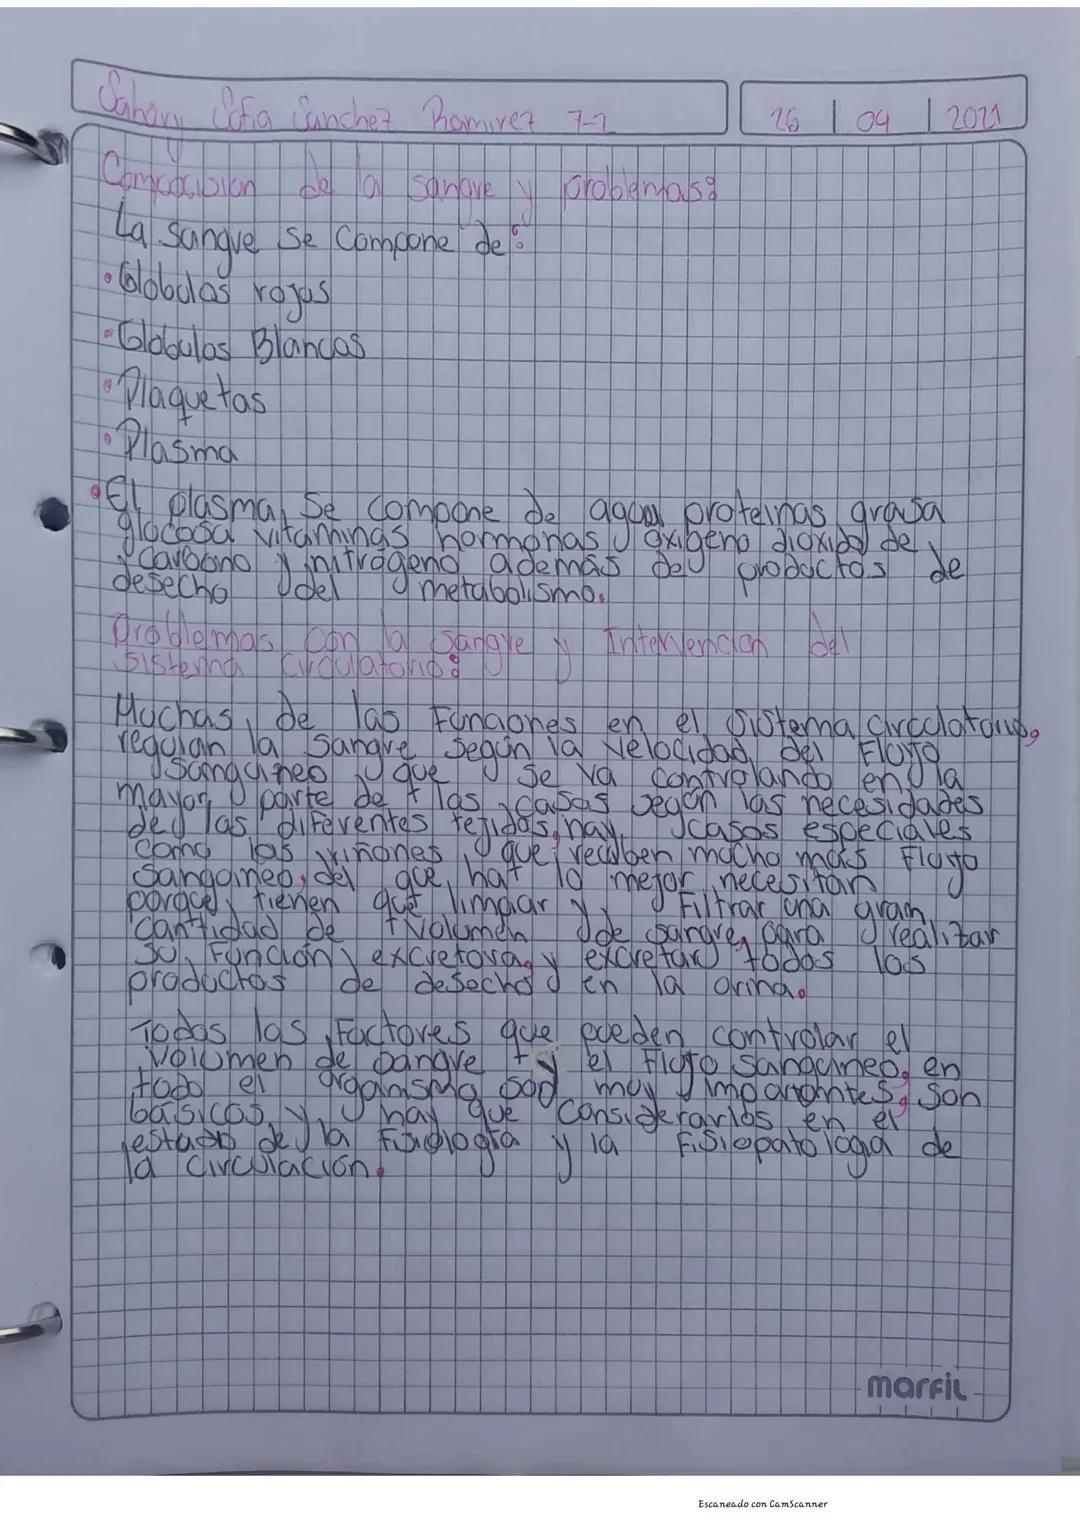 Sahary Sofia Sanchez Ramirez 7-2 26 | 09 | 2021
Composision de la sangre y problemas:
La sangre se compone de:
• Globulos rojos
• Globulos Blancos
• Plaquetas
• Plasma
• El plasma se compone de agua, proteinas, grasa
glucosa vitaminas hormonas y oxigeno dioxido de
carbono y nitrógeno además de productos de
desecho del metabolismo.
Problemas con la sangre y Intervencion del
sistema circulatorio:
Muchas de las Funciones en el sistema circulatorio,
regulan la sangre según la velocidad del Flujo
sanguineo y que se va controlando en la
mayor parte de los casos según las necesidades
de las diferentes tejidos, hay casos especiales
como los riñones, que reciben mucho más Flujo
sanguineo, del que hat lo mejor necesitan
porque, tienen que limpiar y Filtrar una gran
cantidad de volumen de sangre, para realizar
su Función excretora, y excretar todos los
productos de desecho en la orina.
Todos los Factores que pueden controlar el
volumen de sangre y el Flujo sanguineo, en
todo el organismo son muy importantes, son
básicos, y hay que considerarlos en el
estado de la Fisiología y la Fisiopatologia de
la circulación.
marfil
Escaneado con CamScanner